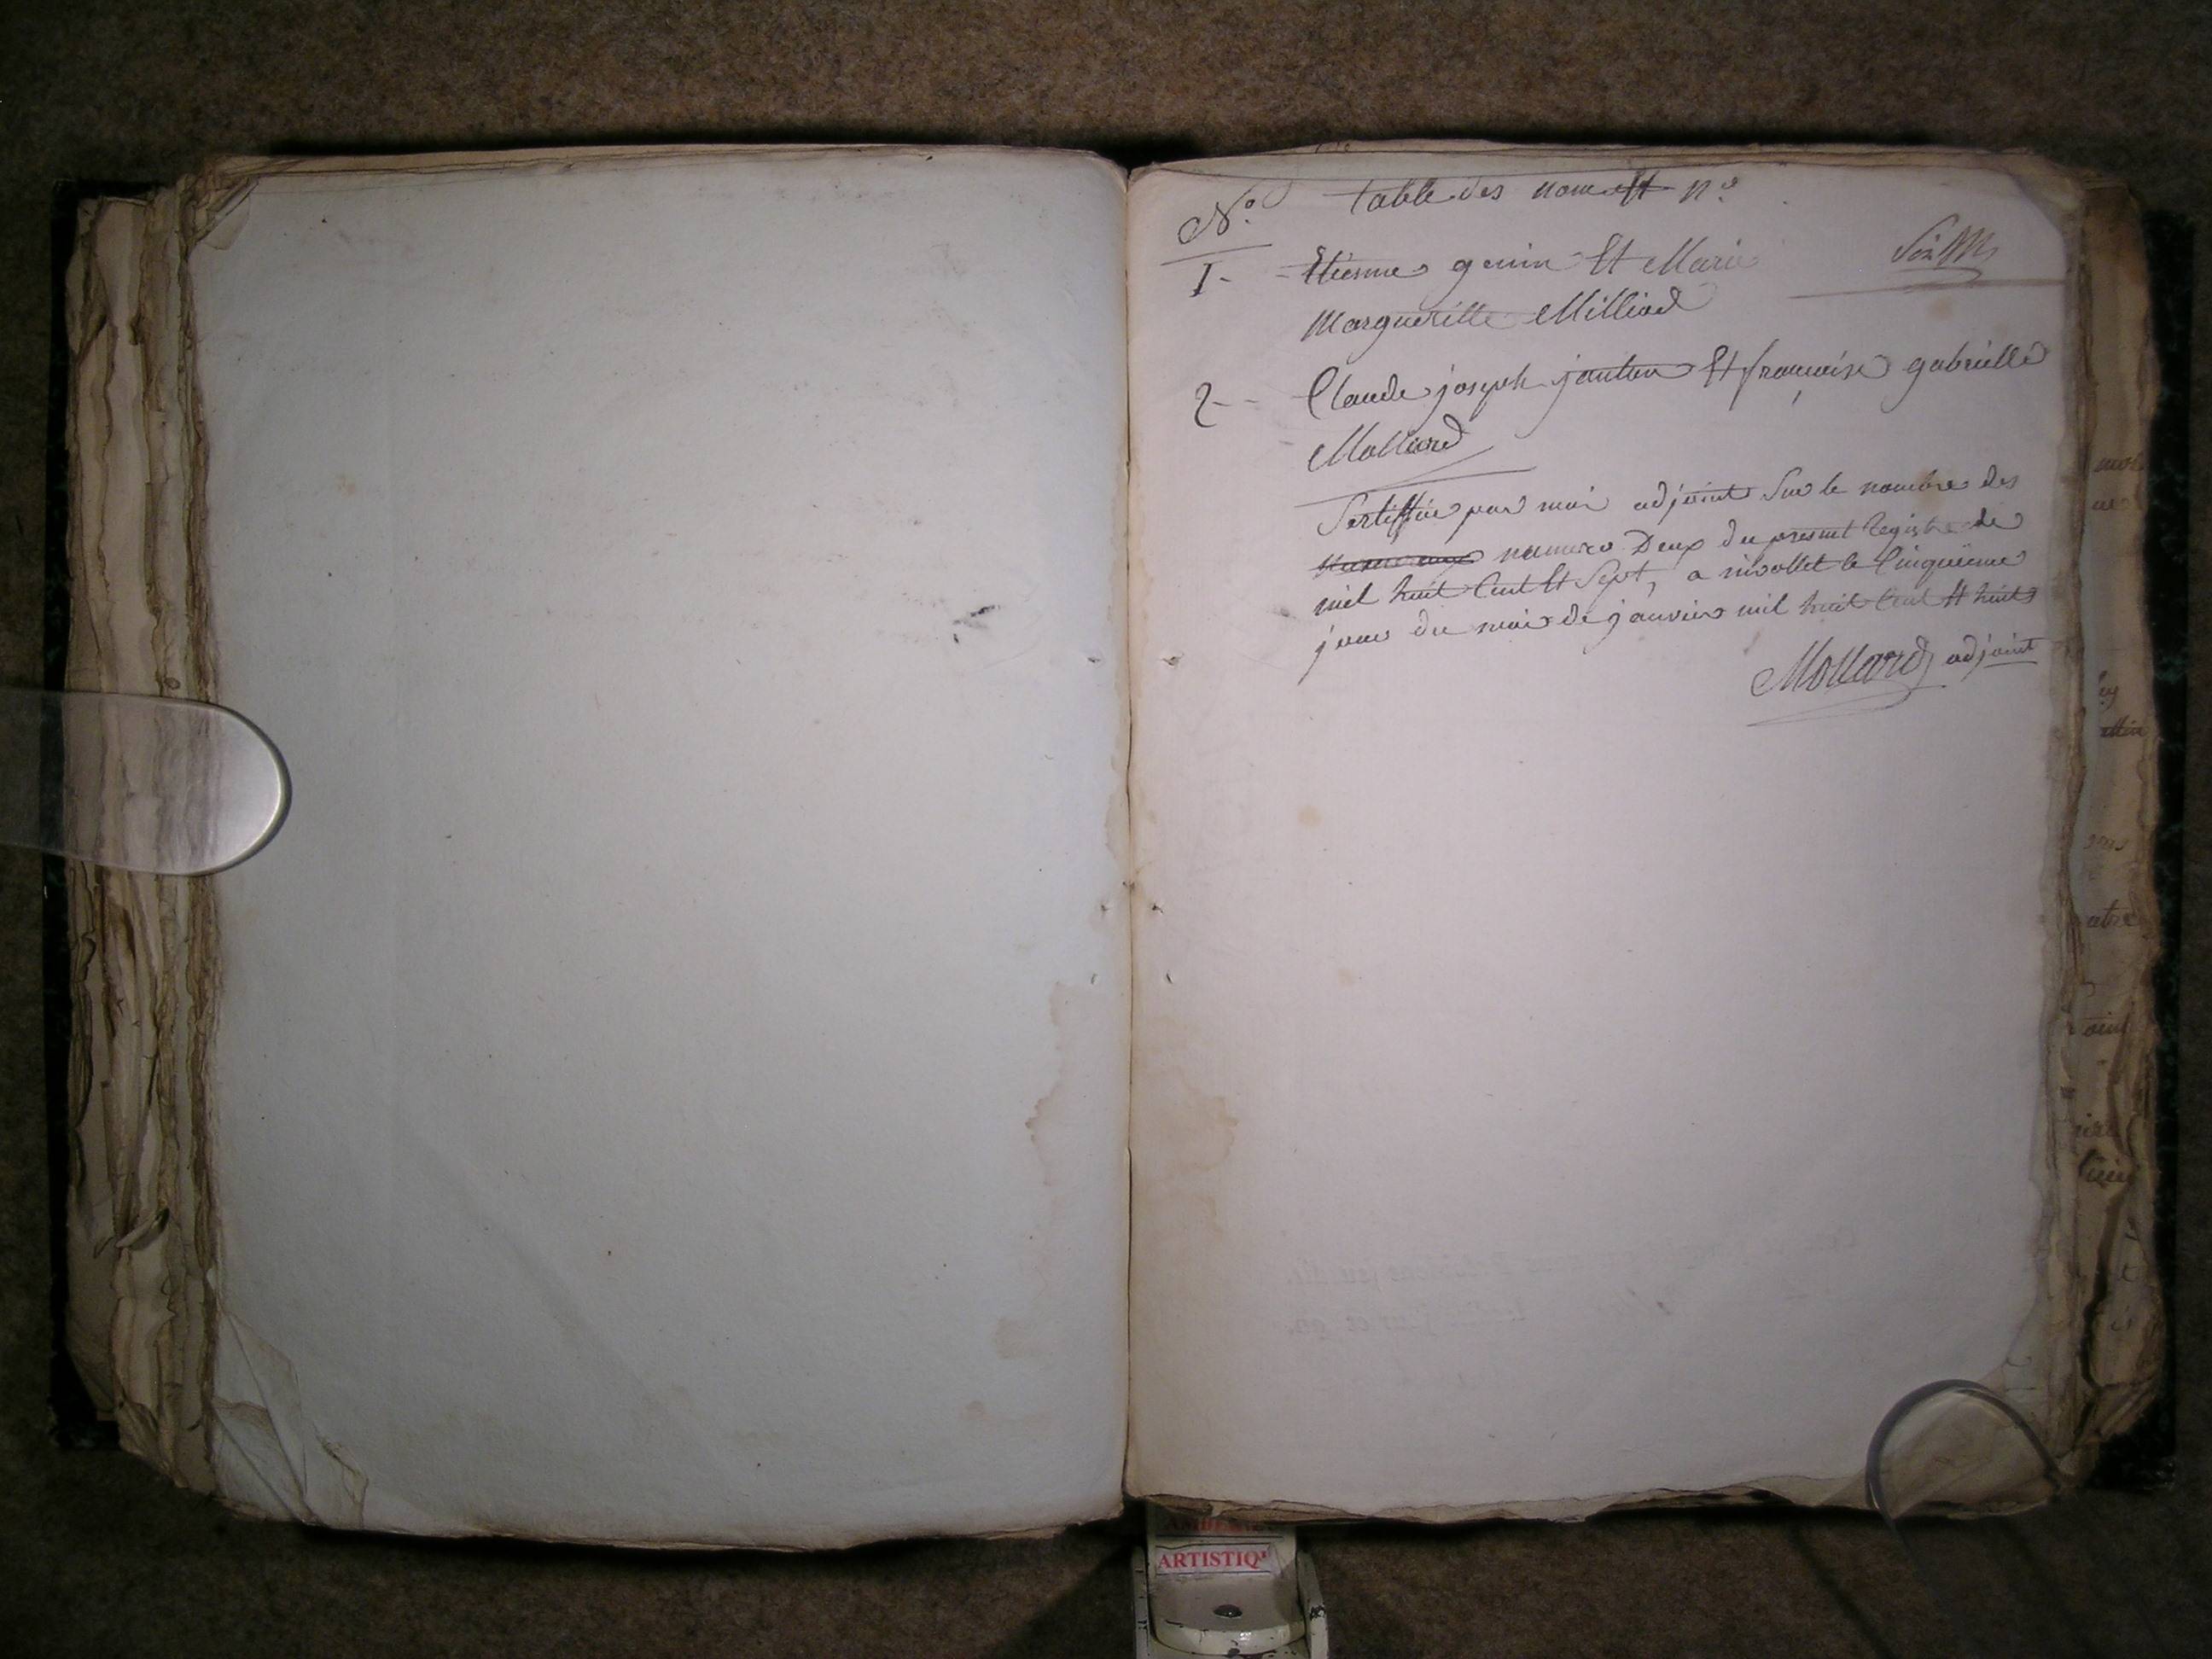 N.o table des nom et n.o
1 - Etienne genin Et Marie
Margueritte Milliod
2 - Claude joseph janton Et françoise gabrielle
Mollard
Sertiffiée par moi adjoint Sur le nombre des
numero Deux du present Registre de
mil huit Cent Et Sept, a nivollet le Cinquieme
jour du mois de janvier mil huit Cent Et huit
Mollard adjoint
ARTISTIQ